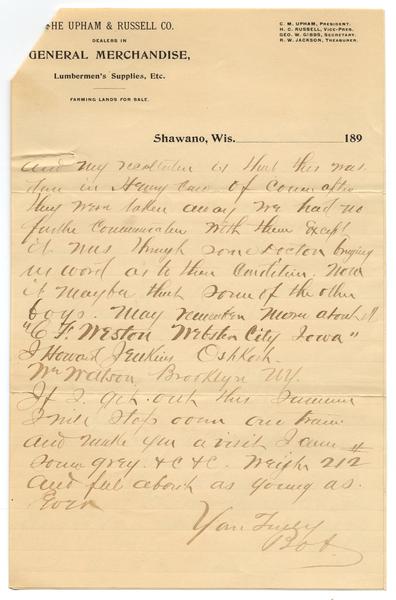 THE UPHAM & RUSSELL CO.
DEALERS IN
GENERAL MERCHANDISE,
Lumbermen's Supplies, Etc.
FARMING LANDS FOR SALE.
C. M. UPHAM, PRESIDENT.
H. C. RUSSELL, VICE-PRES.
GEO. W. GIBBS, SECRETARY.
R. W. JACKSON, TREASURER.
Shawano, Wis. 189
and my recollection is that this was
done in Henry case of course after
they were taken away we had no
further communication with them except
it was through some Doctor bringing
us word as to their condition. Now
it maybe that some of the other
boys. May remember more about it
"C F. Weston Webster City Iowa"
J Howard Jenkins Oshkosh
Wm Watson, Brooklyn NY.
If I get out this summer
I will stop over one train
and make you a visit I am
some grey. & C & C. Weight 212#
and feel about as young as
Ever
Your Truly
Bob.